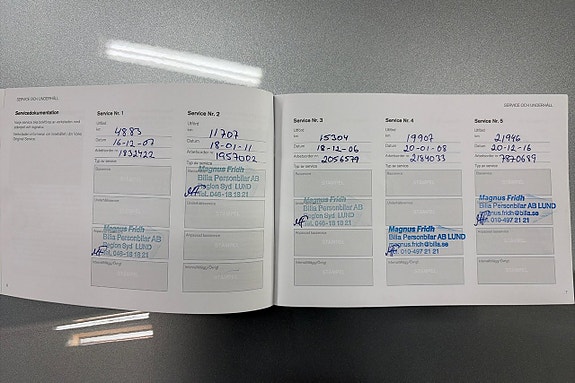 SERVICE OCH UNDERHÅLL
Servicedokumentation
Service Nr. 1
Utförd
km 4883
Datum 16-12-07
Arbetsorder nr 1832422
Typ av service
Basservice
Utökad basservice
Anpassad basservice
Magnus Fridh
Bilia Personbilar AB
Region Syd LUND
Tel. 046-18 18 21
Service Nr. 2
Utförd
km 11707
Datum 18-01-11
Arbetsorder nr 1957002
Typ av service
Magnus Fridh
Bilia Personbilar AB
Region Syd LUND
Tel. 046-18 18 21
Anpassad basservice
STÄMPEL
SERVICE OCH UNDERHÅLL
Service Nr. 3
Utförd
km 15304
Datum 18-12-06
Arbetsorder nr 2056579
Typ av service
Basservice
Magnus Fridh
Bilia Personbilar AB
Region Syd LUND
Tel. 046-18 18 21
Anpassad basservice
STÄMPEL
Service Nr. 4
Utförd
km 19907
Datum 20-01-08
Arbetsorder nr 2184033
Typ av service
Basservice
Magnus Fridh
Bilia Personbilar AB LUND
magnus.fridh@bilia.se
Tel. 010-497 21 21
Service Nr. 5
Utförd
km 21946
Datum 20-12-16
Arbetsorder nr 7870689
Typ av service
Basservice
Magnus Fridh
Bilia Personbilar AB LUND
magnus.fridh@bilia.se
Tel. 010-497 21 21
Anpassad basservice
STÄMPEL